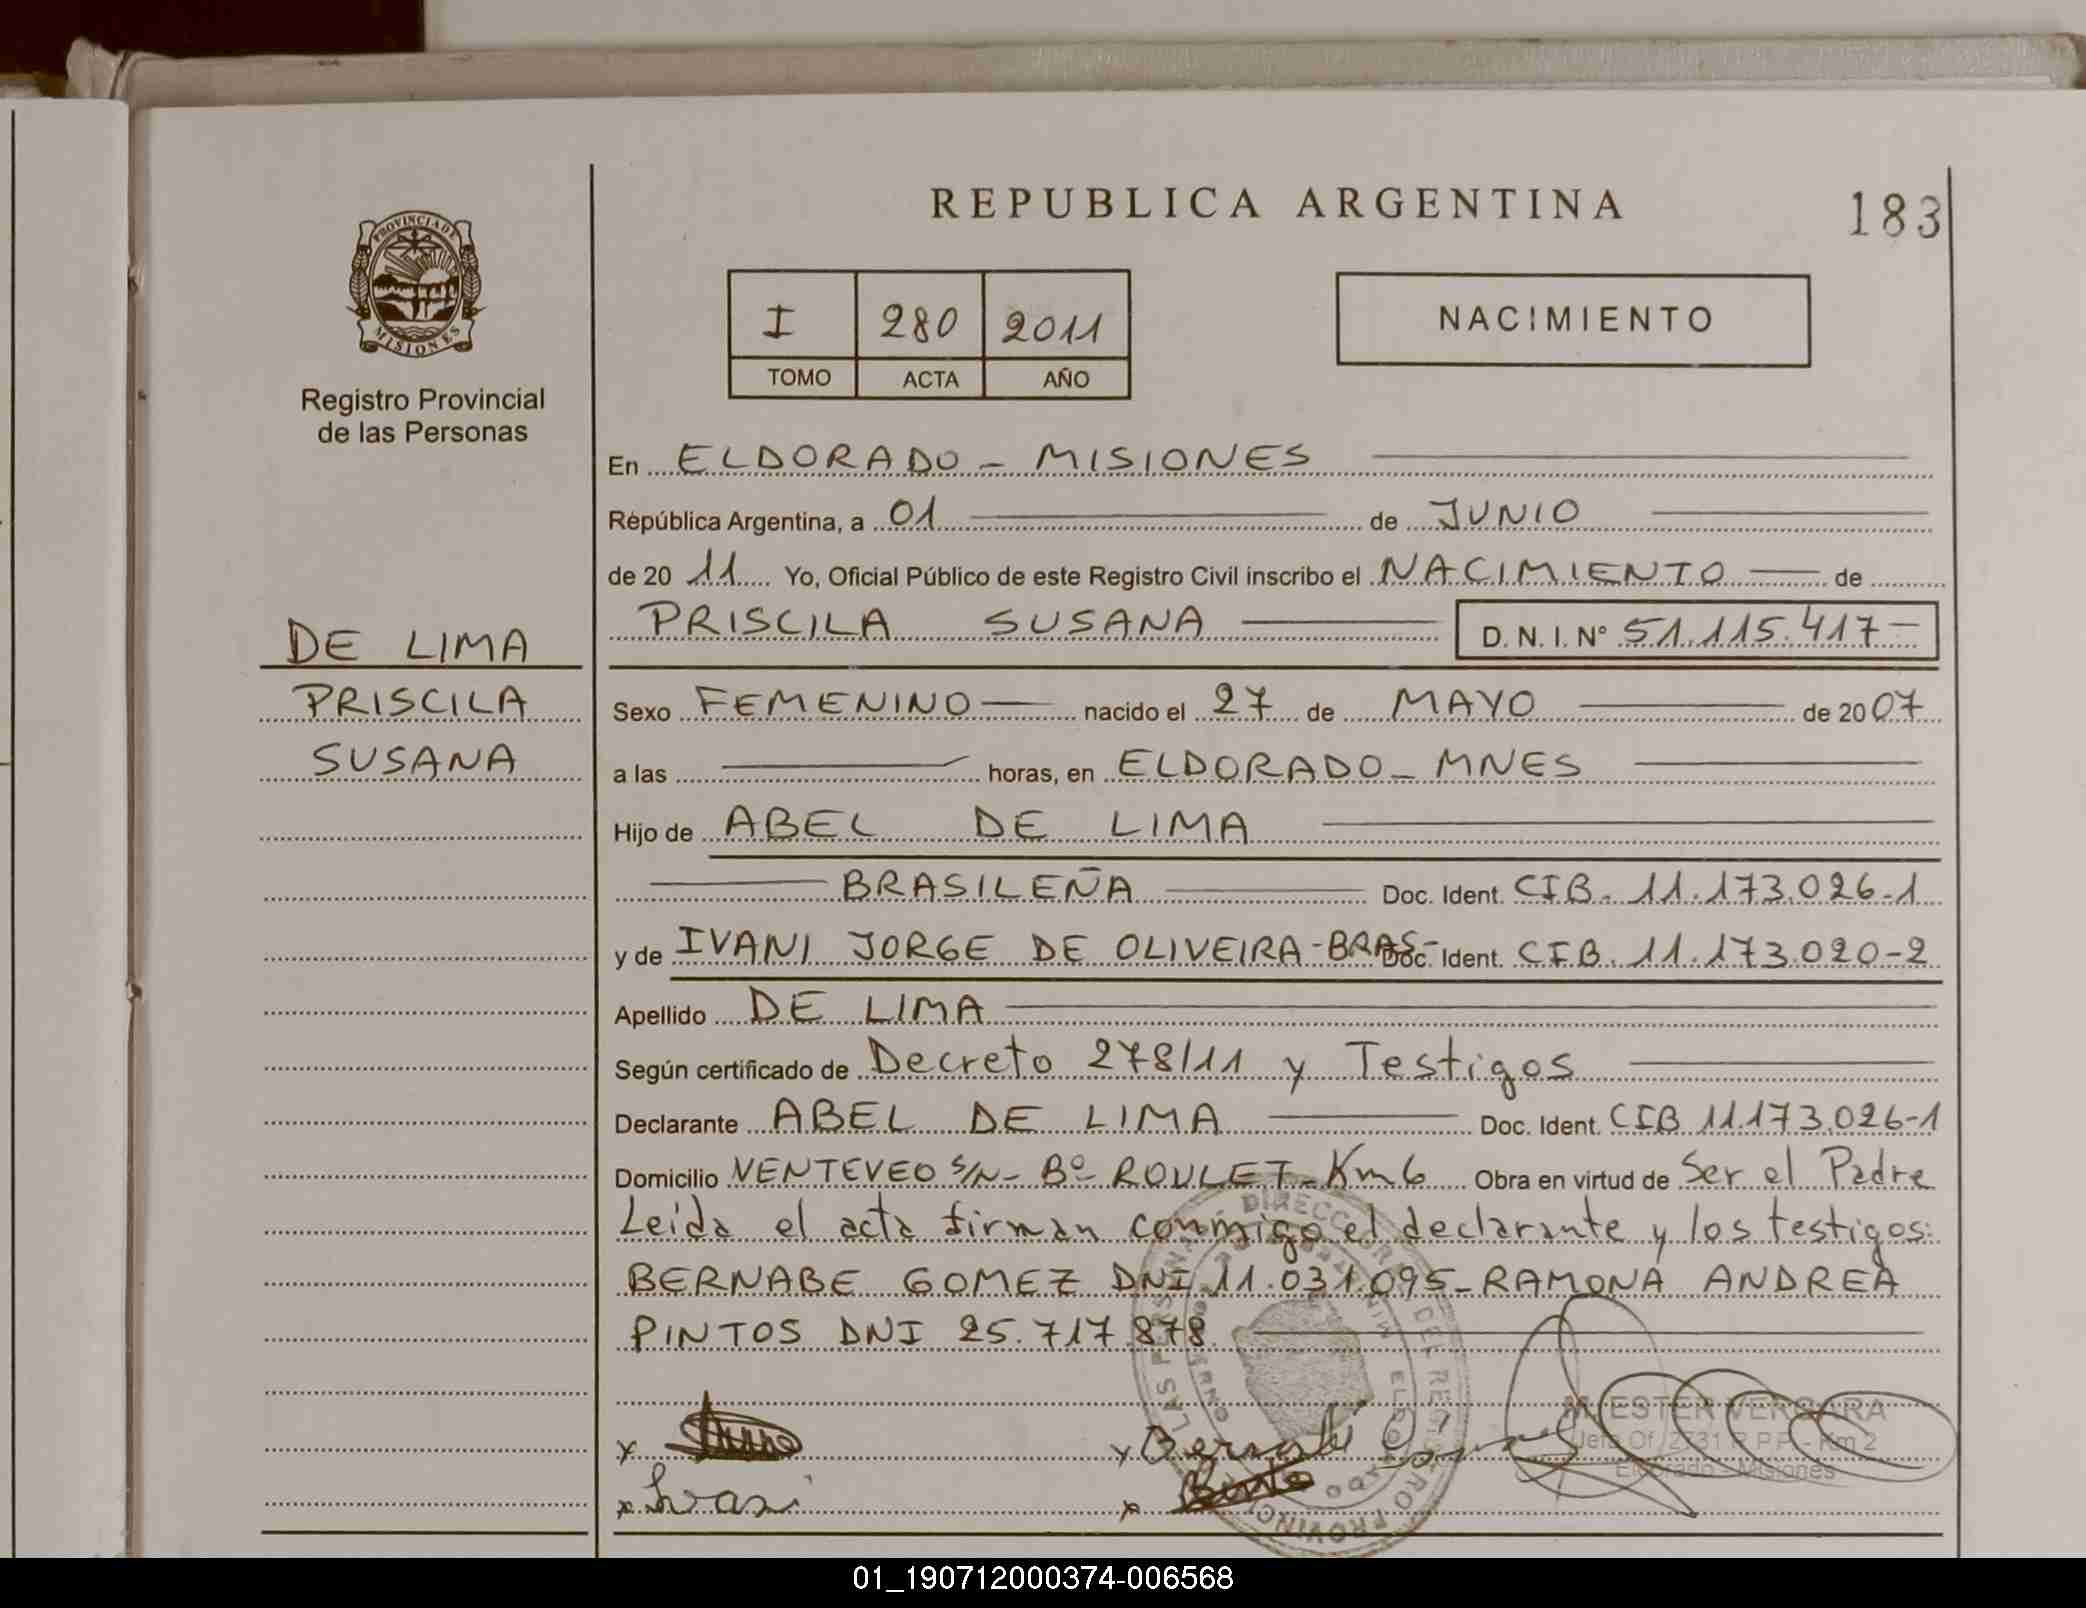 REPUBLICA ARGENTINA
183
PROVINCIA DE MISIONES
Registro Provincial
de las Personas
I 280 2011
TOMO ACTA AÑO
NACIMIENTO
En ELDORADO - MISIONES
República Argentina, a 01 de JUNIO
de 20 11 Yo, Oficial Público de este Registro Civil inscribo el NACIMIENTO de
PRISCILA SUSANA D. N. I. N° 51.115.417
DE LIMA
PRISCILA
SUSANA
Sexo FEMENINO nacido el 27 de MAYO de 2007
a las horas, en ELDORADO - MNES
Hijo de ABEL DE LIMA
BRASILEÑA Doc. Ident. CIB. 11.173.026-1
y de IVANI JORGE DE OLIVEIRA - BRAS- Doc. Ident. CIB. 11.173.020-2
Apellido DE LIMA
Según certificado de Decreto 278/11 y Testigos
Declarante ABEL DE LIMA Doc. Ident. CIB 11.173.026-1
Domicilio VENTEVEO S/N- Bº ROULET - Km 6 Obra en virtud de Ser el Padre
Leida el acta firman conmigo el declarante y los testigos:
BERNABE GOMEZ DNI 11.031.095 - RAMONA ANDREA
PINTOS DNI 25.717.878.
M. ESTER VERGARA
Jefa Of. 2731 R.P.P. - Km 2
Eldorado - Misiones
x
x Bernabé Gomez
x Ivani
x
01_190712000374-006568